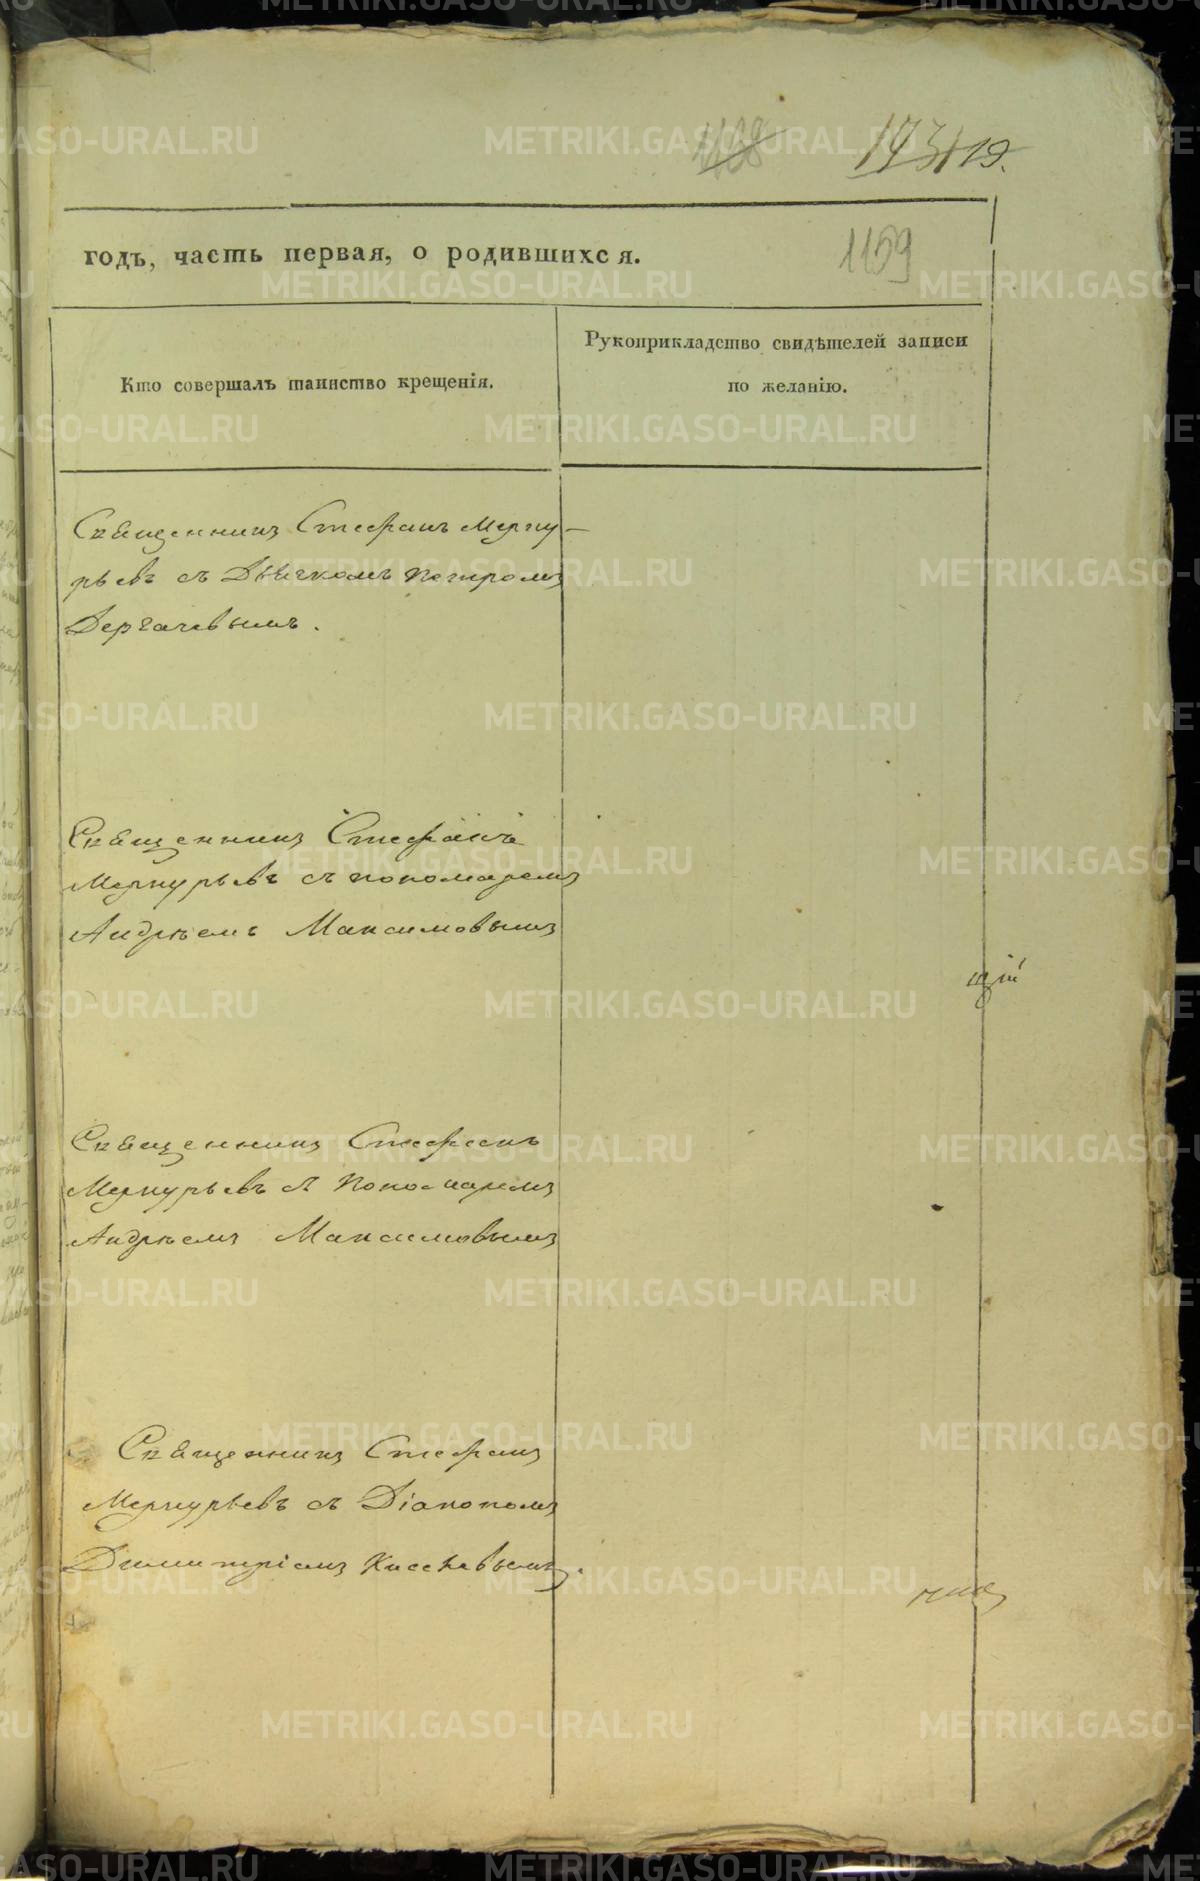 1159
годъ, часть первая, о родившихся.
Кто совершалъ таинство крещенія.
Рукоприкладство свидѣтелей записи
по желанію.
Священникъ Стефанъ Мерку-
рьевъ съ Дьячкомъ Петромъ
Дергачевымъ.
Священникъ Стефанъ
Меркурьевъ съ пономаремъ
Андрѣемъ Максимовымъ
щій
Священникъ Стефанъ
Меркурьевъ съ Пономаремъ
Андрѣемъ Максимовымъ
Священникъ Стефанъ
Меркурьевъ съ Діакономъ
Димитріемъ
METRIKI.GASO-URAL.RU